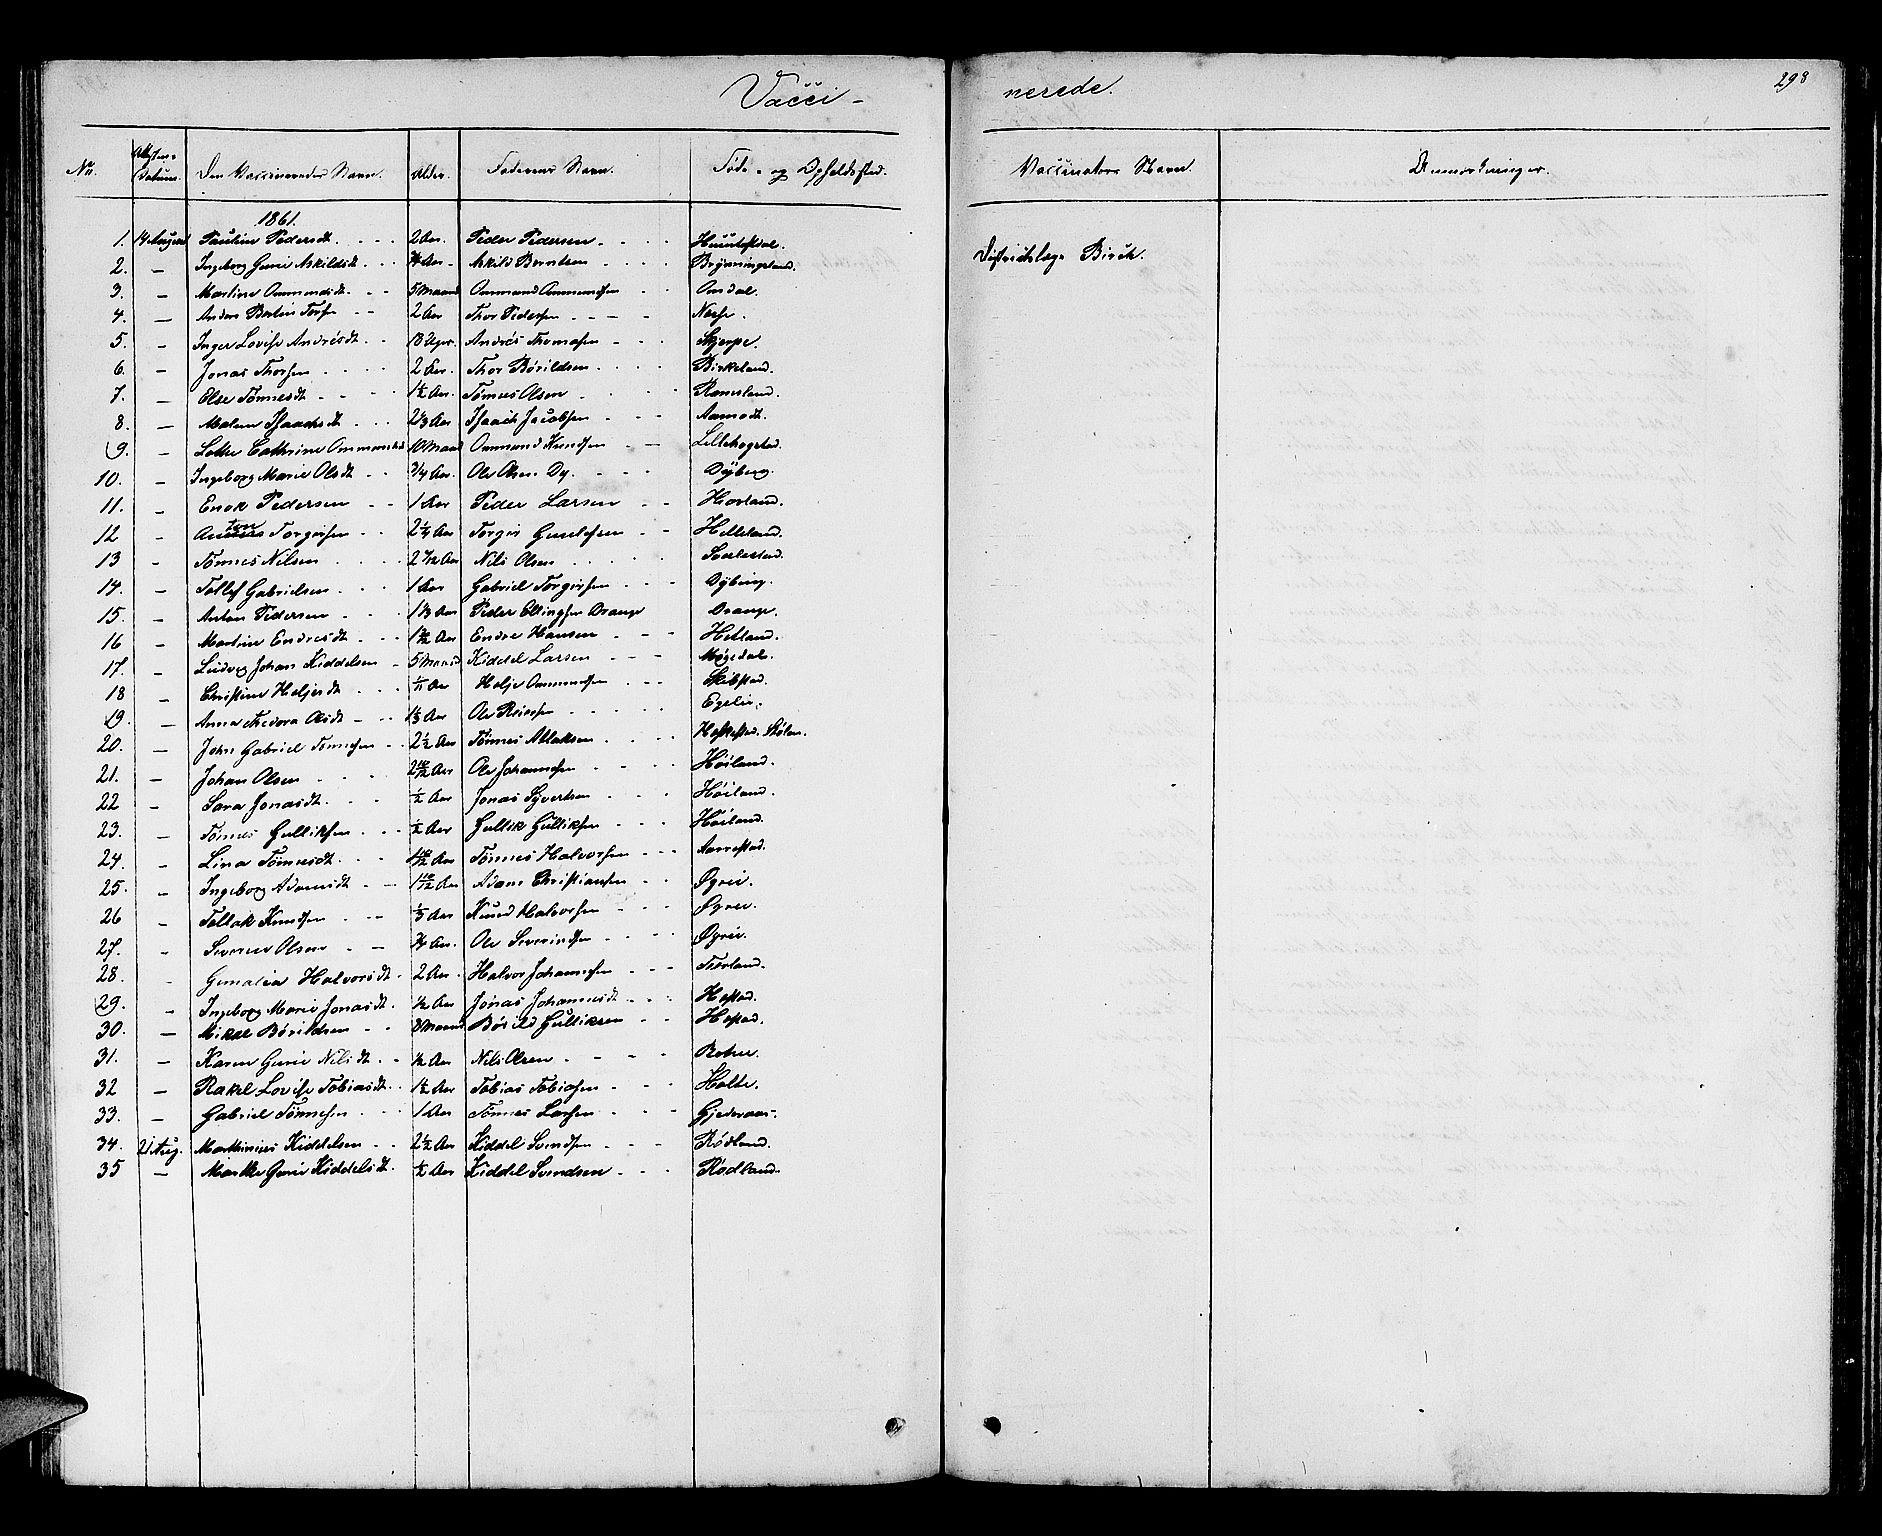 Vacci-
nerede.
298
No. Attestens Datum. Den Vaccineredes Navn. Alder. Faderens Navn. Føde- og Opholdssted. Vaccinators Navn. Anmærkninger.
1861.
1. 14 August Pauline Pedersdt. 2 Aar. Peder Pedersen Districtslæge Birch.
2. — Ingeborg Gurie Askildsdt. Aar Askild Berntsen
3. — Martine Ommundsdt. 5 Maaned Ommund Ommundsen Omdal.
4. — Anders Bertin Torsen 2 Aar Thor Pedersen
5. — Inger Lovise Andrésdt. Andrés Thomasen Skjerpe.
6. — Jonas Thorsen 2 Aar. Thor Bórildsen Birkeland.
7. — Else Tönnesdt. 1½ Aar. Tönnes Olsen Ramsland.
8. — Malene Isaachsdt. 2⅓ Aar Isaach Jacobsen Aamodt.
9. — Cathrine Ommundsd 10 Maaned Ommund Knudsen
10. — Ingeborg Marie Olsdt. ¾ Aar. Ole Olsen Dy. Dyberg.
11. — Enok Pedersen 1 Aar Peder Larsen Hovland.
12 — ton Torgersen 2¼ Aar Torger Gunlefsen Helleland.
13 — Tönnes Nilsen 2 7/12 Aar Nils Olsen
14. — Tollef Gabrielsen 1 Aar Gabriel Torgersen Dyberg.
15. — Anton Pedersen 1⅓ Aar Peder Ellingsen Drange Drange.
16 — Martine Endresdt. Aar Endre Hansen Hetland.
17. — Ludvig Johan Kiddelsen 5 Maaned Kiddel Larsen Møgedal.
18 — Christine Heljesdt. Aar Helje Ommundsen Skibstad.
19. — Anna Thedora Olsdt. 1⅓ Aar Ole Reiersen Egelie.
20. — John Gabriel Tönnesen 2½ Aar Tönnes Atlaksen
21. — Johan Olsen 2 10/12 Aar Ole Johannesen Höiland.
22 — Sara Jonasdt. ½ Aar Jonas Syvertsen Höiland.
23. — Tönnes Gulliksen ½ Aar Gullik Gulliksen Höiland.
24. — Lina Tönnesdt. Aar Tönnes Halvorsen Aarrestad.
25. — Ingeborg Adamsdt 1 10/12 Aar Adam Christiansen Øyrei.
26 — Tollak Knudsen ⅓ Aar Knud Halvorsen Øyrei.
27. — Severin Olsen ¾ Aar. Ole Severindsen Øyrei.
28. — Halvorsdt. 2 Aar. Halvor Johannesen
29. — Ingeborg Marie Jonasdt. ½ Aar Jonas Johannesdt Hestad.
30. — Mikal Börildsen 8 Maaned Börild Gulliksen Hestad.
31. — Karen Gurie Nilsdt. ½ Aar Nils Olsen
32 — Rakel Lovise Tobiasdt. 1½ Aar Tobias Tobiasen Holte.
33. — Gabriel Tönnesen 1 Aar Tönnes Larsen
34. 21 Aug. Mathinius Kiddelsen 2½ Aar Kiddel Svendsen Rödland.
35 — Marthe Gurie Kiddelsdt. ½ Aar Kiddel Svendsen Rödland.